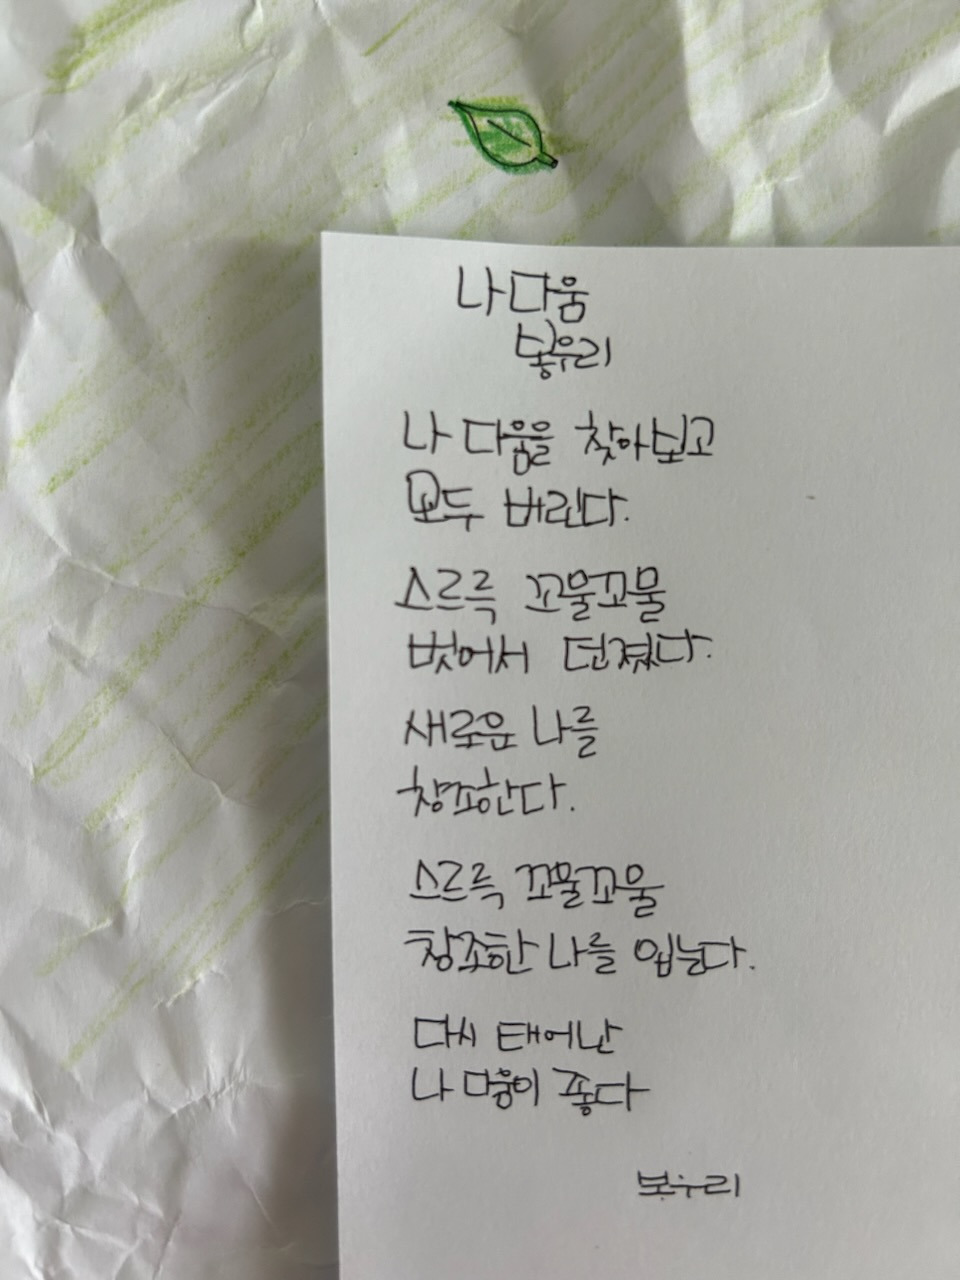 나 다움
봉우리
나 다움을 찾아보고
모두 버린다.
스르륵 꼬물꼬물
벗어서 던졌다.
새로운 나를
창조한다.
스르륵 꼬물꼬물
창조한 나를 입는다.
다시 태어난
나 다움이 좋다
봉우리